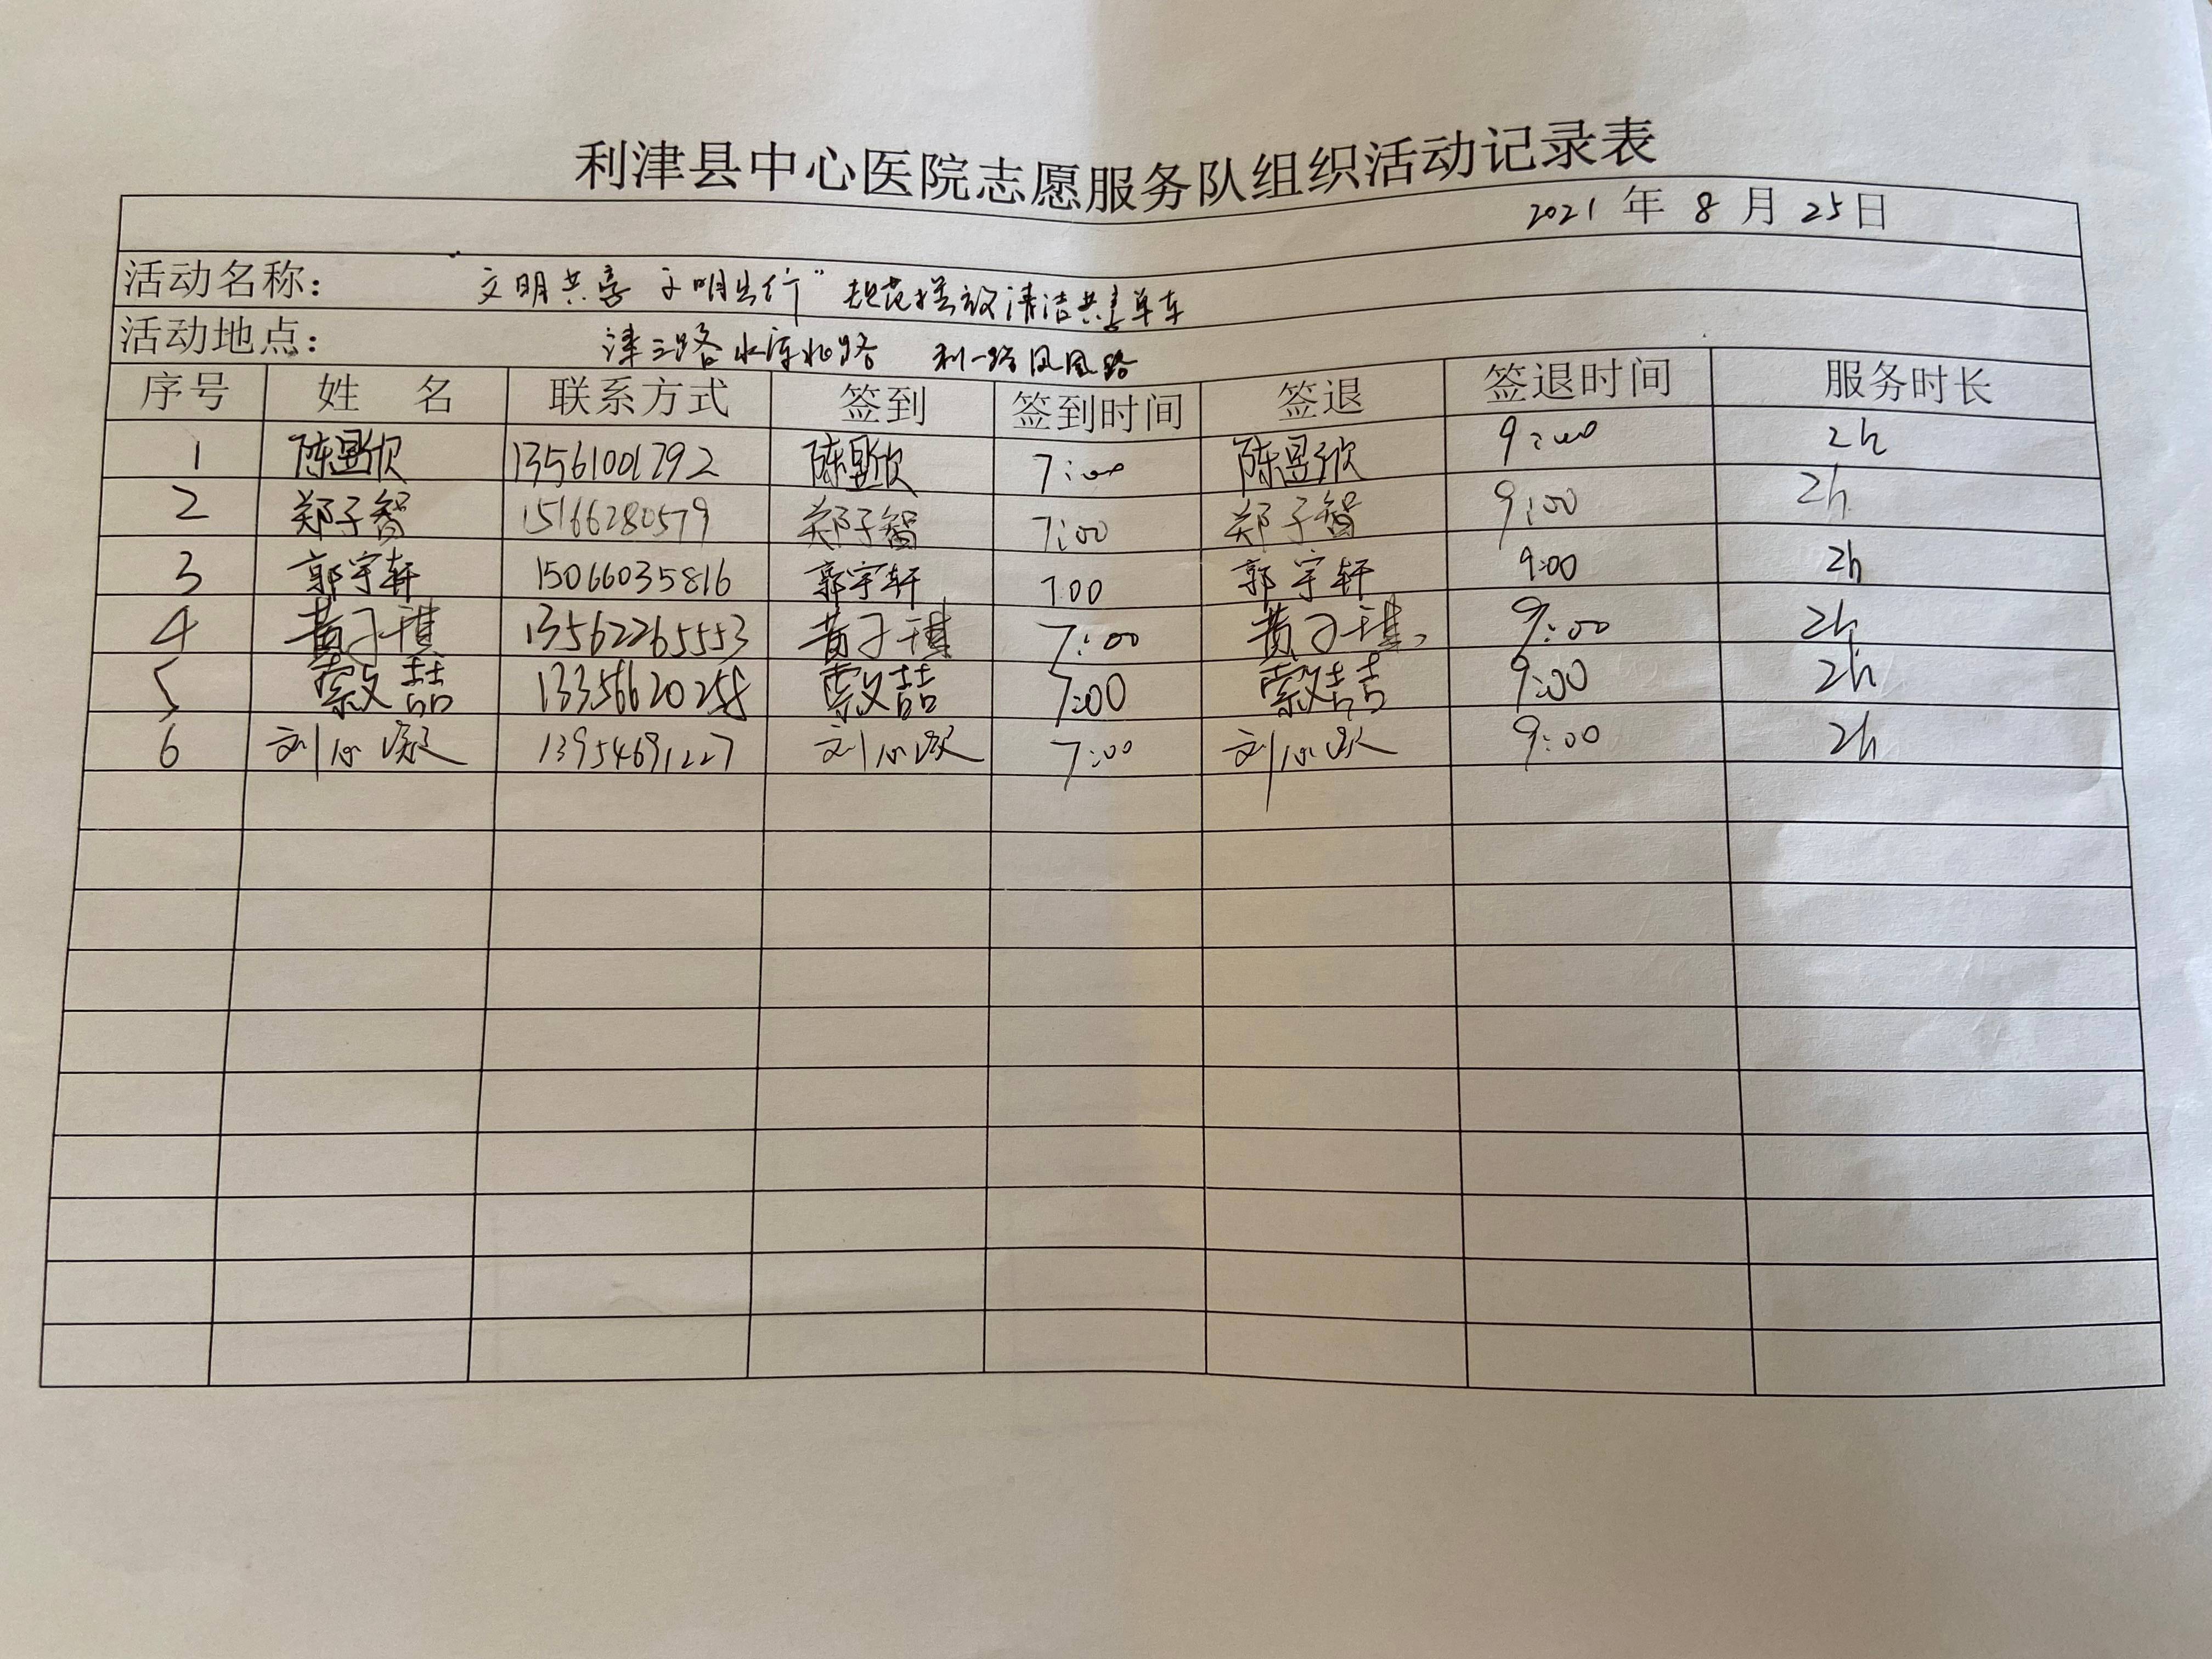 利津县中心医院志愿服务队组织活动记录表
2021 年 8 月 25日
活动名称： “文明共享 文明出行” 规范摆放清洁共享单车
活动地点： 津三路 利一路凤凰路
序号 姓 名 联系方式 签到 签到时间 签退 签退时间 服务时长
1 陈昱欣 13561001792 陈昱欣 7:00 陈昱欣 9:00 2h
2 郑子智 15166280579 郑子智 7:00 郑子智 9:00 2h
3 郭宇轩 15066035816 郭宇轩 7:00 郭宇轩 9:00 2h
4 黄子琪 13562265553 黄子琪 7:00 黄子琪 9:00 2h
5 13356620258 7:00 9:00 2h
6 刘 13954691227 刘 7:00 刘 9:00 2h